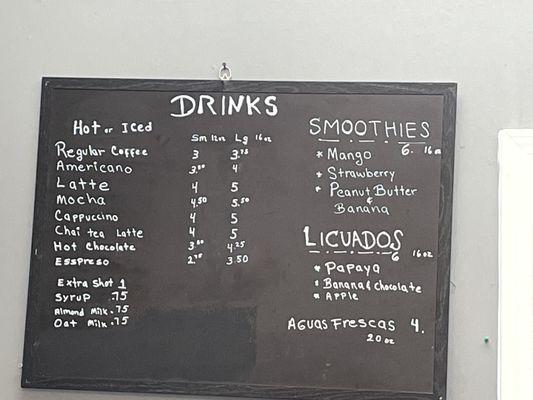 DRINKS
Hot or Iced
Sm 12oz Lg 16oz
Regular Coffee 3 3.75
Americano 3.50 4
Latte 4 5
Mocha 4.50 5.50
Cappuccino 4 5
Chai tea Latte 4 5
Hot Chocolate 4.25
Esspreso 2.75 3.50
Extra Shot 1
Syrup .75
Almond Milk .75
Oat Milk .75
SMOOTHIES
6. 16oz
* Mango
* Strawberry
* Peanut Butter
&
Banana
LICUADOS
6 16oz
* Papaya
* Banana & Chocolate
* Apple
Aguas Frescas 4.
20oz